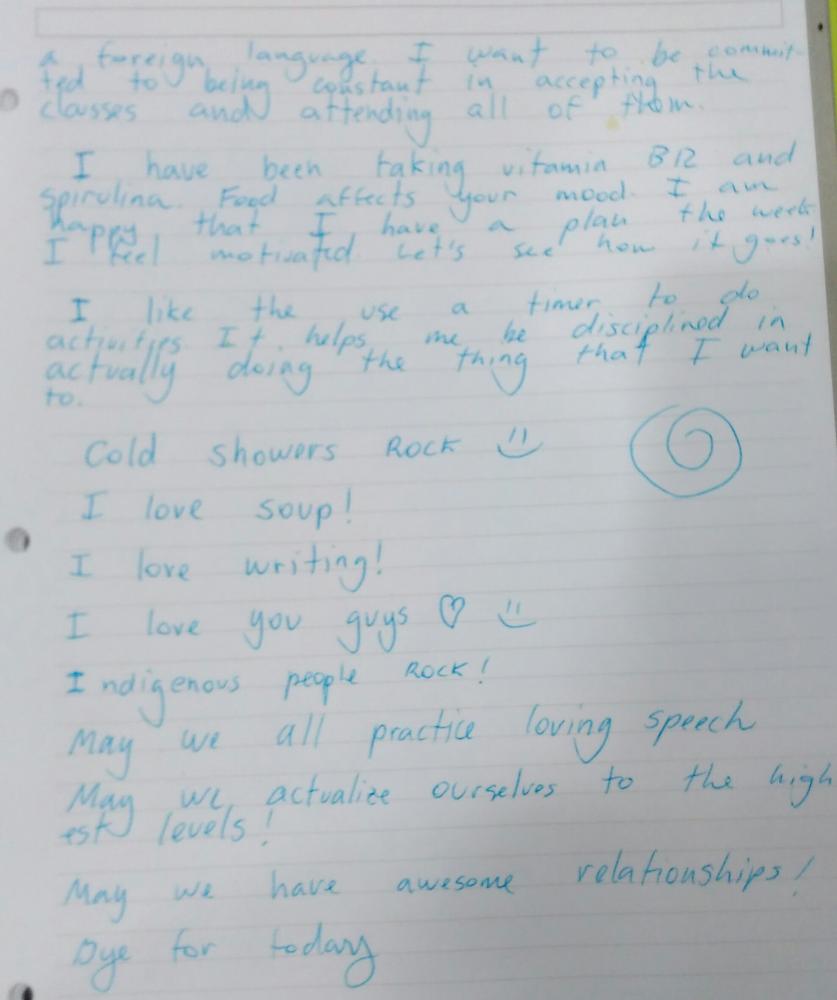 a foreign language. I want to be commit-
ted to being constant in accepting the
classes and attending all of them.
I have been taking vitamin B12 and
spirulina. Food affects your mood. I am
happy that I have a plan the week
I feel motivated. Let's see how it goes!
I like the use a timer to do
activities. It helps me be disciplined in
actually doing the thing that I want
to.
Cold showers ROCK
I love soup!
I love writing!
I love you guys ♡
Indigenous people ROCK!
May we all practice loving speech
May we actualize ourselves to the high
est levels!
May we have awesome relationships!
Bye for today